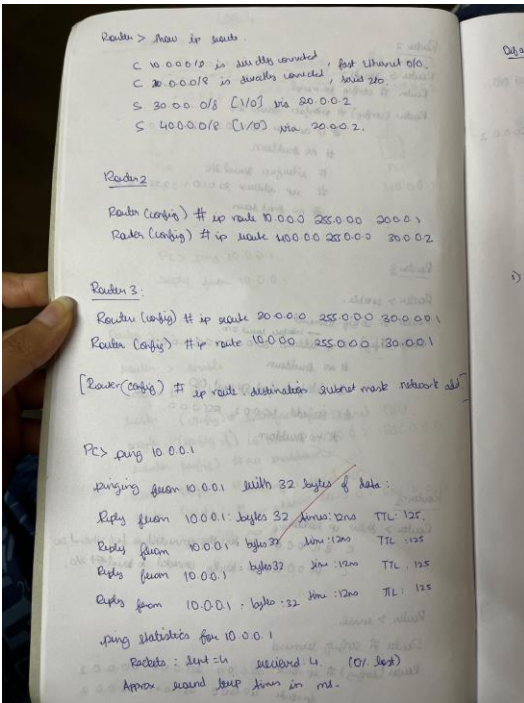 Router > show ip route.
C 10.0.0.0/8 is directly connected, fast Ethernet 0/0.
C 20.0.0.0/8 is directly connected, serial 2/0.
S 30.0.0.0/8 [1/0] via 20.0.0.2
S 40.0.0.0/8 [1/0] via 20.0.0.2.
Router 2
Router (config) # ip route 10.0.0.0 255.0.0.0 20.0.0.1
Router (config) # ip route 40.0.0.0 255.0.0.0 30.0.0.2
Router 3:
Router (config) # ip route 20.0.0.0 255.0.0.0 30.0.0.1
Router (config) # ip route 10.0.0.0 255.0.0.0 30.0.0.1
[Router(config) # ip route destination subnet mask network add]
PC> ping 10.0.0.1
pinging from 10.0.0.1 with 32 bytes of data:
Reply from 10.0.0.1: bytes 32 times:12ms TTL: 125.
Reply from 10.0.0.1: bytes 32 time:12ms TTL:125
Reply from 10.0.0.1 bytes 32 time:12ms TTL:125
Reply from 10.0.0.1: bytes:32 time:12ms TTL: 125
ping statistics for 10.0.0.1
Packets: sent=4 recieved:4. (0% lost)
Approx. round trip times in ms.